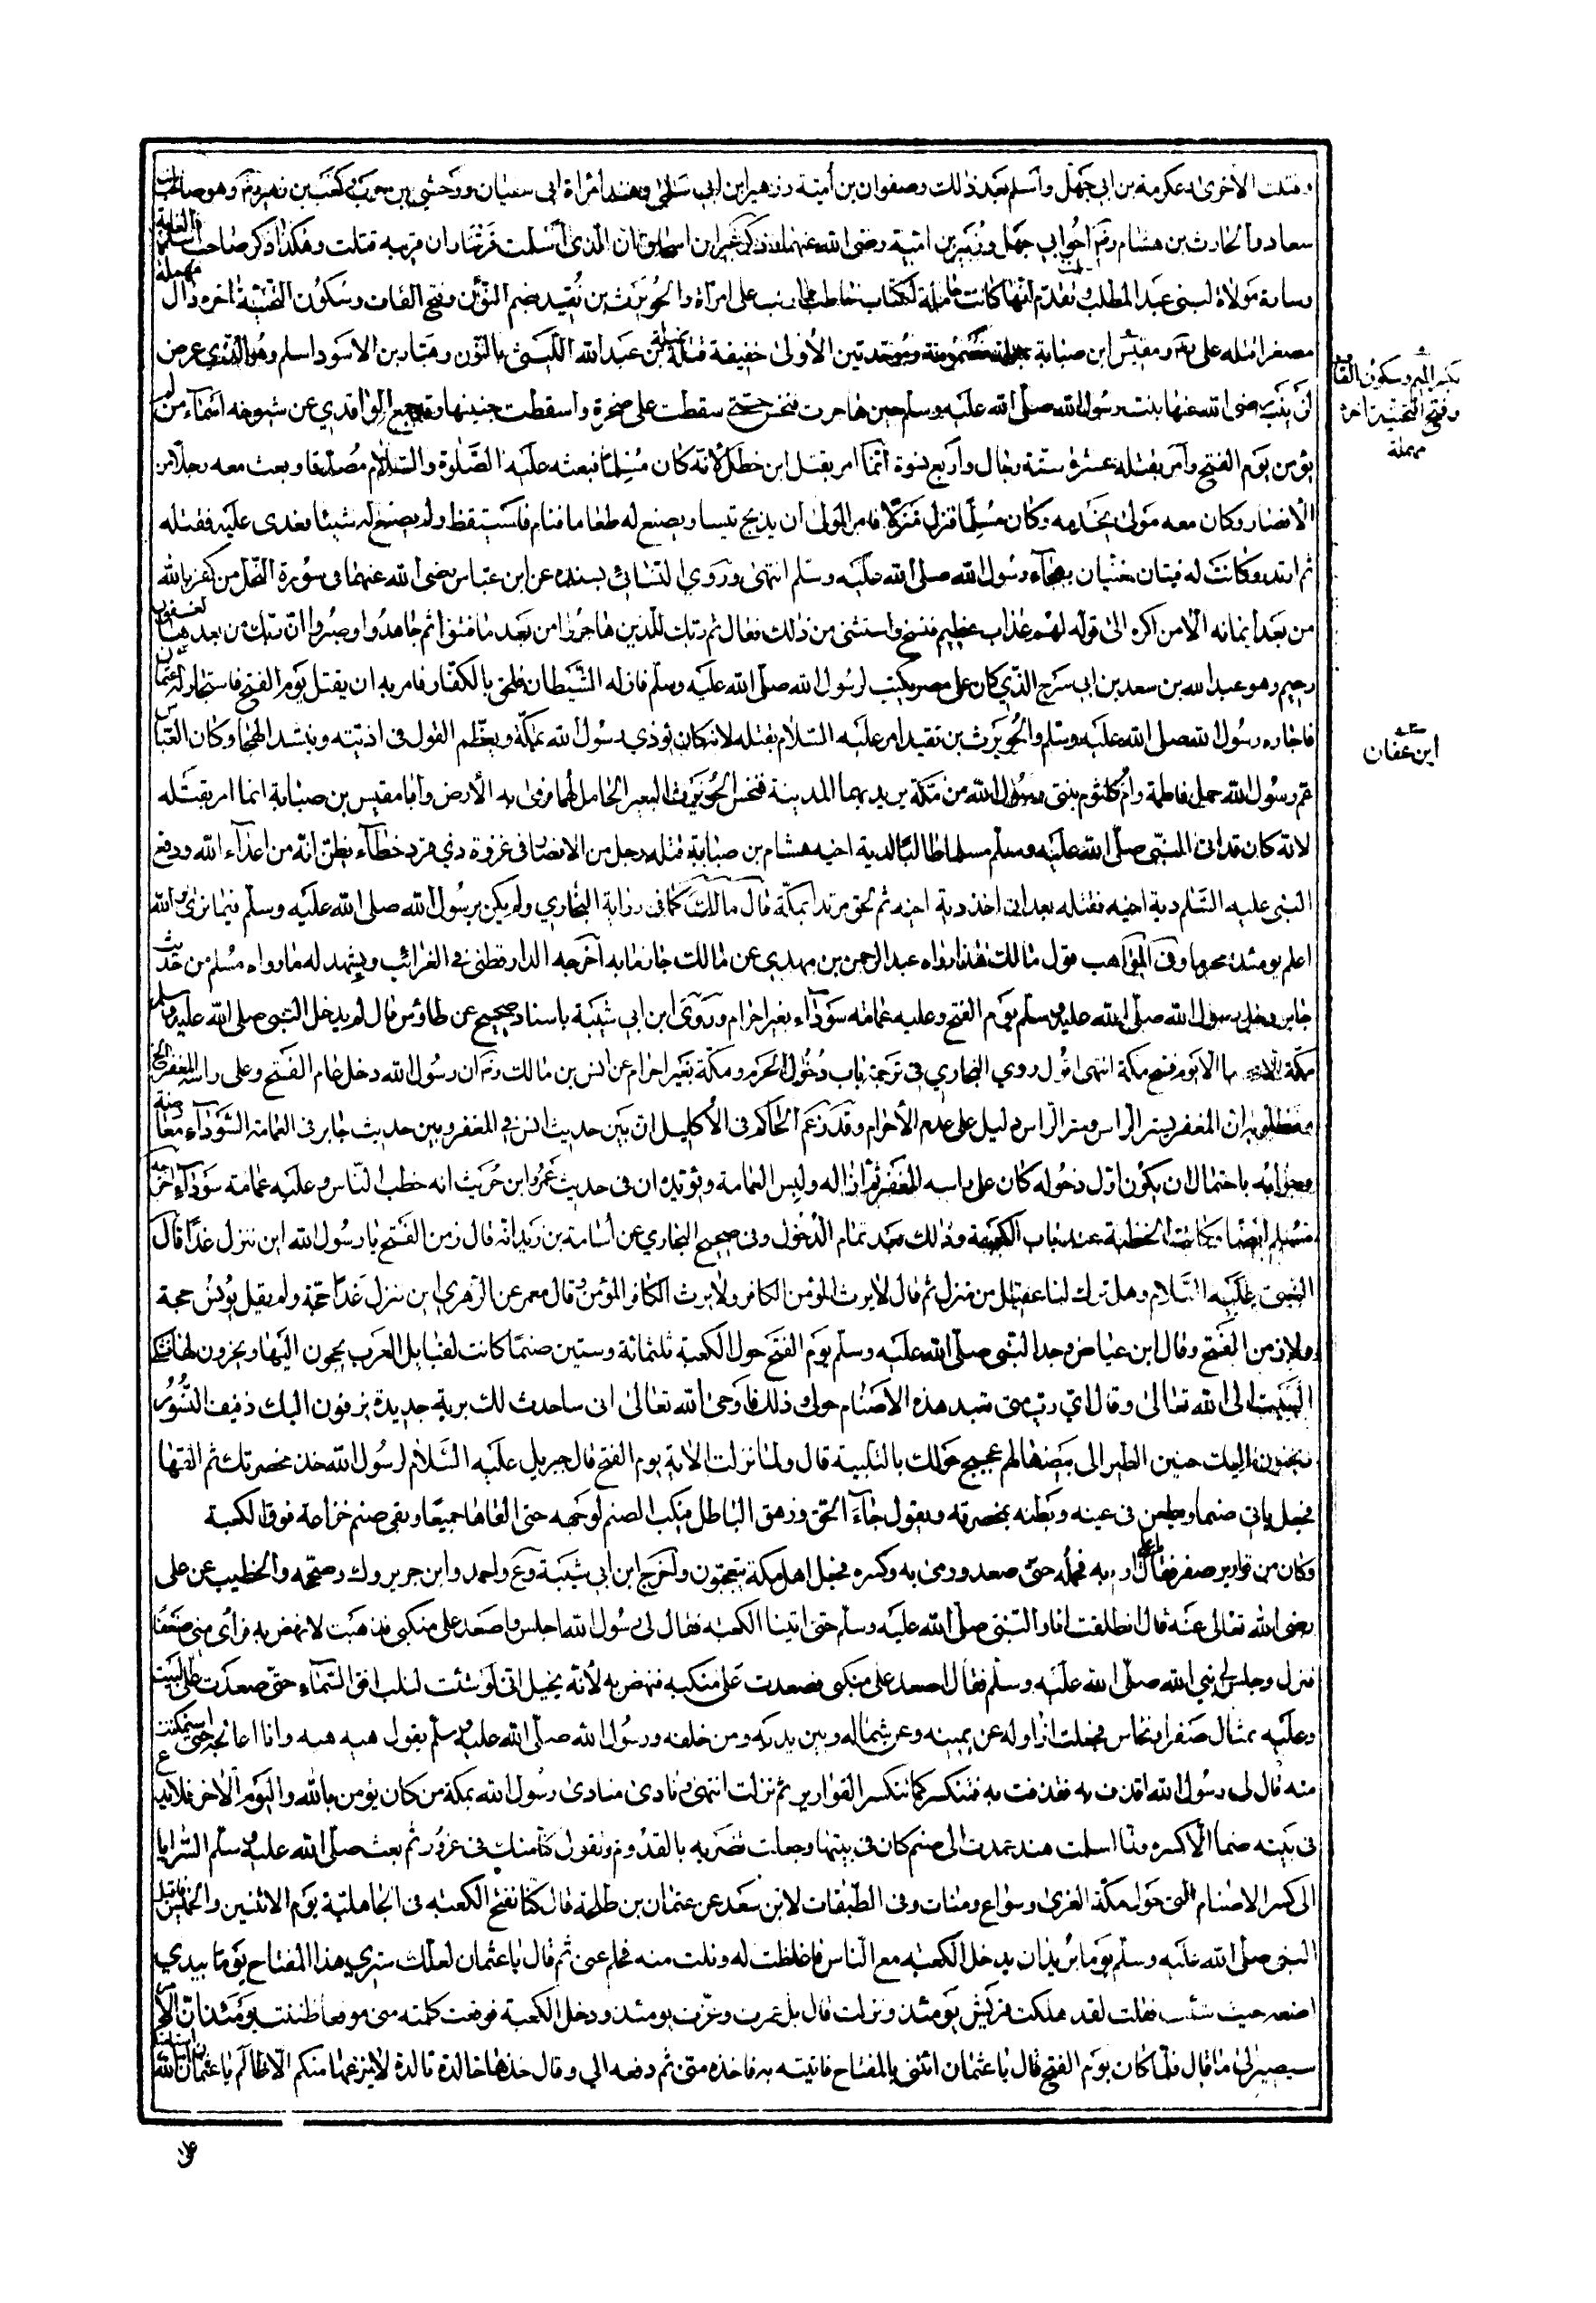 وقتلت الاخرى وعكرمة بن ابي جهل واسلم بعد ذلك وصفوان بن أمية وزهير ابن ابي سلمى وهند امراة ابي سفيان ووحشي بن حرب وكعب بن زهير وهو صاحب بانت
سعاد والحارث بن هشام اخو ابي جهل وزهير بن امية رضى الله عنهما وذكر غير ابن اسحاق ان التي أسلمت فرتنا وان قريبه قتلت وهكذا ذكر صاحب
وسارة مولاة لبنى عبد المطلب وتقدم انها كانت حاملة لكتاب حاطب على امرأة والحويرث بن نقيد بضم النون وفتح القاف وسكون التحتية اخره دال مهملة
مصغرا قتله على ومقيس ابن صبابة الاولى خفيفة قتله نميلة بن عبد الله الليثى بالنون وهبار بن الاسود اسلم وهو الذي عرض
لزينب رضى الله عنها بنت رسول الله صلى الله عليه وسلم حين هاجرت فنخس حتى سقطت على صخرة واسقطت جنينها وقد جمع الواقدي عن شيوخه اسماء من لم
يؤمن يوم الفتح وأمر بقتله عشرة ستة رجال وأربع نسوة انما امر بقتل ابن خطل لانه كان مسلما فبعثه عليه الصلوة والسلام مصدقا وبعث معه رجلا من
الانصار وكان معه مولى يخدمه وكان مسلما فنزل منزلا فامر المولى ان يذبح تيسا ويصنع له طعاما فنام فاستيقظ ولم يصنع له شيئا فعدى عليه فقتله
ثم ارتد وكانت له قينتان تغنيان بهجاء رسول الله صلى الله عليه وسلم انتهى وروى النسائي بسنده عن ابن عباس رضى الله عنهما فى سورة النحل من كفر بالله
من بعد ايمانه الا من اكره الى قوله لهم عذاب عظيم فنسخ واستثنى من ذلك فقال ثم ان ربك للذين هاجروا من بعد ما فتنوا ثم جاهدوا وصبروا ان ربك من بعدها لغفور
رحيم وهو عبد الله بن سعد بن ابى سرح الذي كان على مصر يكتب لرسول الله صلى الله عليه وسلم فازله الشيطان فلحق بالكفار فامر به ان يقتل يوم الفتح فاستجار له عثمان
فاجاره رسول الله صلى الله عليه وسلم والحويرث بن نقيد امر عليه السلام بقتله لانه كان يوذي رسول الله بمكة ويعظم القول فى اذيته وينشد الهجا وكان العباس
عم رسول الله حمل فاطمة وام كلثوم بنتى رسول الله من مكة يريد بهما المدينة فنخس الحويرث البعير الحامل لهما فرمى به الأرض واما مقيس بن صبابة انما امر بقتله
لانه كان قد اتى النبى صلى الله عليه وسلم مسلما طالبا لدية اخيه هشام بن صبابة قتله رجل من الانصار فى غزوة ذي قرد خطاء يظن انه من اعداء الله ودفع
النبى عليه السلم دية اخيه فقتله بعد ان اخذ دية اخيه ثم لحق مرتدا بمكة قال مالك كما فى رواية البخاري ولم يكن رسول الله صلى الله عليه وسلم فيما نرى والله
اعلم يومئذ محرما وفى المواهب قول مالك هذا رواه عبد الرحمن بن مهدي عن مالك جازما به اخرجه الدارقطنى فى الغرائب ويشهد له ما رواه مسلم من حديث
جابر دخل رسول الله صلى الله عليه وسلم يوم الفتح وعليه عمامه سوداء بغير احرام وروى ابن ابي شيبة باسناد صحيح عن طاؤس قال لم يدخل النبى صلى الله عليه وسلم
مكة الا يوم فتح مكة انتهى اقول روي البخاري فى ترجمة باب دخول الحرم ومكة بغير احرام عن انس بن مالك ان رسول الله دخل عام الفتح وعلى راسه المغفر
ان المغفر يستر الراس وستر الراس دليل على عدم الاحرام وقد زعم الحاكم فى الاكليل ان بين حديث انس فى المغفر وبين حديث جابر فى العمامة السوداء معارضة
وجوابه باحتمال ان يكون اول دخوله كان على راسه المغفر ثم ازاله ولبس العمامة ويؤيده ان فى حديث عمرو ابن حريث انه خطب الناس وعليه عمامة سوداء اخرجه
مسلم ايضا وكانت الخطبة عند باب الكعبة وذلك بعد تمام الدخول وفى صحيح البخاري عن أسامة بن زيد انه قال زمن الفتح يا رسول الله اين ننزل غدا قال
النبى عليه السلام وهل ترك لنا عقيل من منزل ثم قال لا يرث المؤمن الكافر ولا يرث الكافر المؤمن قال معمر عن الزهري اين ننزل غدا حجته ولم يقل يونس حجة
ولا زمن الفتح وقال ابن عباس وجد النبى صلى الله عليه وسلم يوم الفتح حول الكعبة ثلثمائة وستين صنما كانت لقبايل العرب يحجون اليها وينحرون لها فشكى
البيت الى الله تعالى وقال اي رب حتى متى تعبد هذه الاصنام حولى فاوحى الله تعالى انى ساحدث لك برية جديدة يزفون اليك ذفيف النسور
ويحنون اليك حنين الطير الى بيضها لهم عجيج حولك بالتلبية قال ولما نزلت الاية يوم الفتح قال جبريل عليه السلام لرسول الله خذ مخصرتك ثم القها
فجعل ياتى صنما ويطعن فى عينه وبطنه بمخصرته ويقول جاء الحق وزهق الباطل فيكب الصنم لوجهه حتى القاها جميعا وبقى صنم خزاعة فوق الكعبة
وكان من قوارير صفر فقال ارم به فحمله حتى صعد ورمى به وكسره فجعل اهل مكة يتعجبون واخرج ابن ابي شيبة وع واحمد وابن جرير وك وصححه والخطيب عن على
رضى الله تعالى عنه قال انطلقت انا والنبى صلى الله عليه وسلم حتى اتينا الكعبه فقال لى رسول الله اجلس واصعد على منكبى فذهبت لانهض به فرأى منى ضعفا
فنزل وجلس لى نبي الله صلى الله عليه وسلم فقال اصعد على منكبى فصعدت على منكبيه فنهض به لانه يخيل انى لو شئت لنلت افق السماء حتى صعدت على البيت
وعليه تمثال صفر او نحاس فجعلت ازاوله عن يمينه وعن شماله وبين يديه ومن خلفه ورسول الله صلى الله عليه وسلم يقول هيه هيه وانا اعالجه حتى استمكنت
منه قال لى رسول الله اقذف به فقذفت به فتنكسر كما تنكسر القوارير ثم نزلت انتهى ونادى منادى رسول الله بمكة من كان يؤمن بالله واليوم الاخر فلا يدع
فى بيته صنما الا كسره ولما اسلمت هند عمدت الى صنم كان فى بيتها وجعلت تضربه بالقدوم وتقول كنا منك فى غرور ثم بعث صلى الله عليه وسلم السرايا
الى كسر الاصنام التى حول مكة العزى وسواع ومنات وفى الطبقات لابن سعد عن عثمان بن طلحة قال كنا نفتح الكعبه فى الجاهلية يوم الاثنين والخميس فاقبل
النبى صلى الله عليه وسلم يوما يريد ان يدخل الكعبه مع الناس فاغلظت له ونلت منه فحلم عنى ثم قال يا عثمان لعلك سترى هذا المفتاح يوما بيدي
اضعه حيث شئت فقلت لقد هلكت قريش يومئذ وذلت قال بل عمرت وعزت يومئذ ودخل الكعبة فوقعت كلمته منى موقعا ظننت يومئذ ان الامر
سيصير الى ما قال فلما كان يوم الفتح قال يا عثمان ائتنى بالمفتاح فاتيته به فاخذه منى ثم دفعه الي وقال خذها خالدة تالدة لا ينزعها منكم الا ظالم يا عثمان ان الله
بكسر الميم وسكون القاف
وفتح التحتية اخره
مهملة
ابن عفان